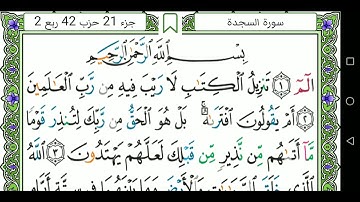 سورة السجدة
جزء 21 حزب 42 ربع 2
بِسْمِ ٱللَّهِ ٱلرَّحْمَٰنِ ٱلرَّحِيمِ
الٓمٓ ١ تَنزِيلُ ٱلْكِتَٰبِ لَا رَيْبَ فِيهِ مِن رَّبِّ ٱلْعَٰلَمِينَ
٢ أَمْ يَقُولُونَ ٱفْتَرَىٰهُ ۚ بَلْ هُوَ ٱلْحَقُّ مِن رَّبِّكَ لِتُنذِرَ قَوْمًا
مَّآ أَتَىٰهُم مِّن نَّذِيرٍ مِّن قَبْلِكَ لَعَلَّهُمْ يَهْتَدُونَ ٣ ٱللَّهُ
ٱلَّذِى خَلَقَ ٱلسَّمَٰوَٰتِ وَٱلْأَرْضَ وَمَا بَيْنَهُمَا فِى سِتَّةِ أَيَّامٍ